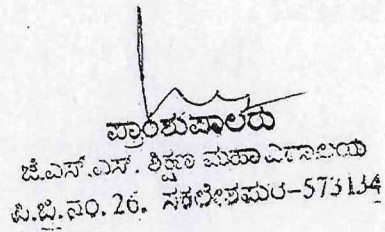 ಪ್ರಾಂಶುಪಾಲರು
ಜೆ.ಎಸ್.ಎಸ್. ಶಿಕ್ಷಣ ಮಹಾವಿದ್ಯಾಲಯ
ಪಿ.ಬಿ.ನಂ. 26, ಸಕಲೇಶಪುರ-573134